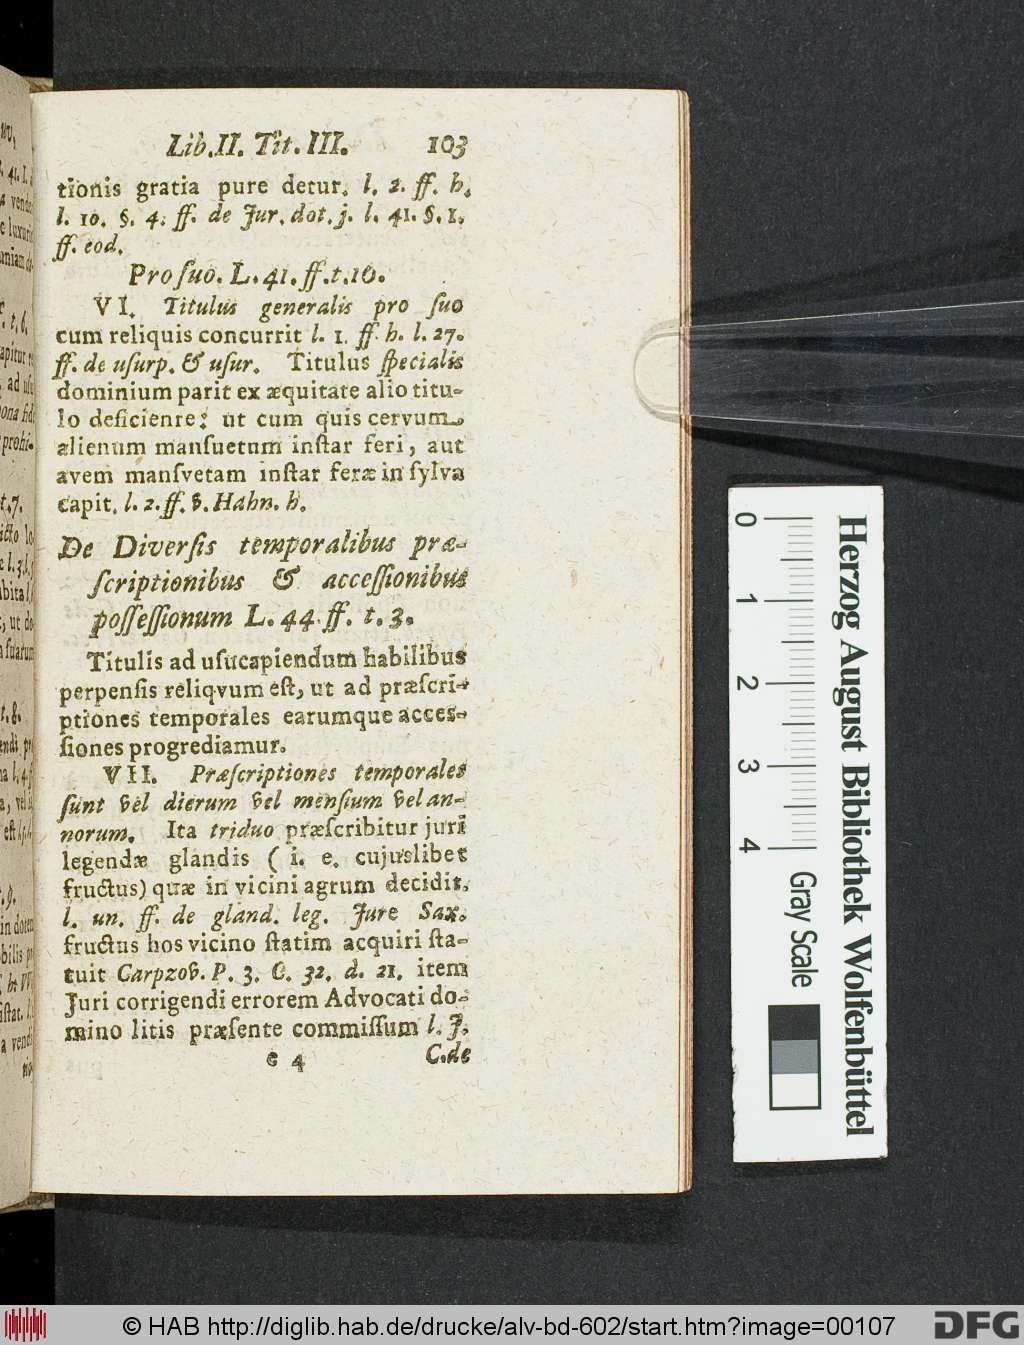 Lib. II. Tit. III. 103
tionis gratia pure detur. l. 2. ff. h.
l. 10. §. 4. ff. de Jur. dot. j. l. 41. §. 1.
ff. eod.
Pro ſuo. L. 41. ff. t. 10.
VI. Titulus generalis pro ſuo
cum reliquis concurrit l. 1. ff. h. l. 27.
ff. de uſurp. & uſur. Titulus ſpecialis
dominium parit ex æquitate alio titu-
lo deficienre: ut cum quis cervum
alienum manſuetum inſtar feri, aut
avem manſvetam inſtar feræ in ſylva
capit. l. 2. ff. v. Hahn. h.
De Diverſis temporalibus præ-
ſcriptionibus & acceſſionibus
poſſeſſionum L. 44. ff. t. 3.
Titulis ad uſucapiendum habilibus
perpenſis reliqvum eſt, ut ad præſcri-
ptiones temporales earumque acceſ-
ſiones progrediamur.
VII. Præſcriptiones temporales
ſunt vel dierum vel menſium vel an-
norum. Ita triduo præſcribitur juri
legendæ glandis ( i. e. cujuslibet
fructus) quæ in vicini agrum decidit.
l. un. ff. de gland. leg. Jure Sax.
fructus hos vicino ſtatim acquiri ſta-
tuit Carpzov. P. 3. C. 32. d. 21. item
Juri corrigendi errorem Advocati do-
mino litis præſente commiſſum l. J.
e 4 C. de
0 1 2 3 4
Gray Scale
Herzog August Bibliothek Wolfenbüttel
© HAB http://diglib.hab.de/drucke/alv-bd-602/start.htm?image=00107
DFG